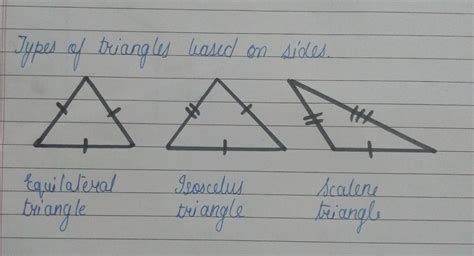 Types of triangles based on sides.
Equilateral triangle
Isoscelus triangle
Scalene triangle